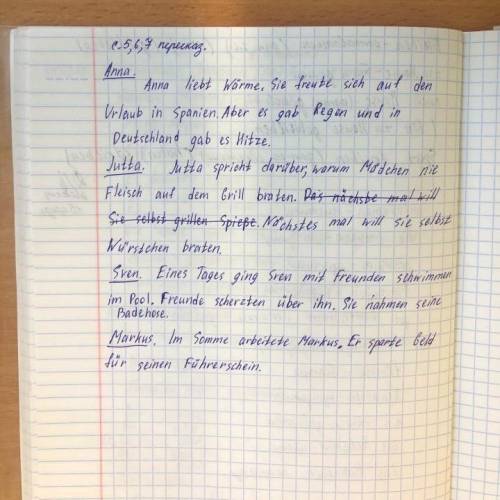 с.5,6,7 пересказ.
Anna.
Anna liebt Wärme. Sie freute sich auf den
Urlaub in Spanien. Aber es gab Regen und in
Deutschland gab es Hitze.
Jutta. Jutta spricht darüber, warum Mädchen nie
Fleisch auf dem Grill braten. Das nächste mal will
Sie selbst grillen Spieße. Nächstes mal will sie selbst
Würstchen braten.
Sven. Eines Tages ging Sven mit Freunden schwimmen
im Pool. Freunde scherzten über ihn. Sie nahmen seine
Badehose.
Markus. Im Somme arbeitete Markus. Er sparte Geld
für seinen Führerschein.